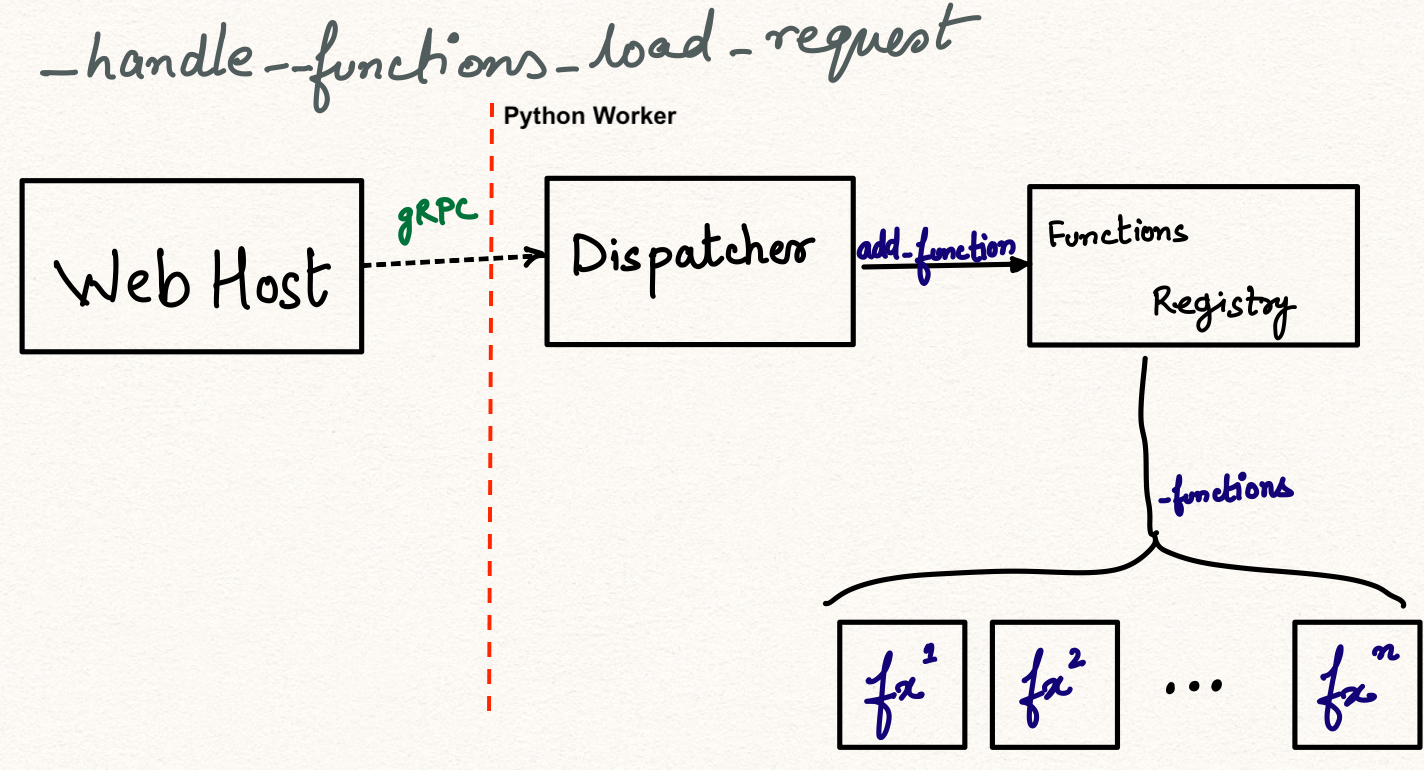 _handle__functions_load_request
Python Worker
Web Host
gRPC
Dispatcher
add_function
Functions
Registry
_functions
fx¹
fx²
...
fxⁿ